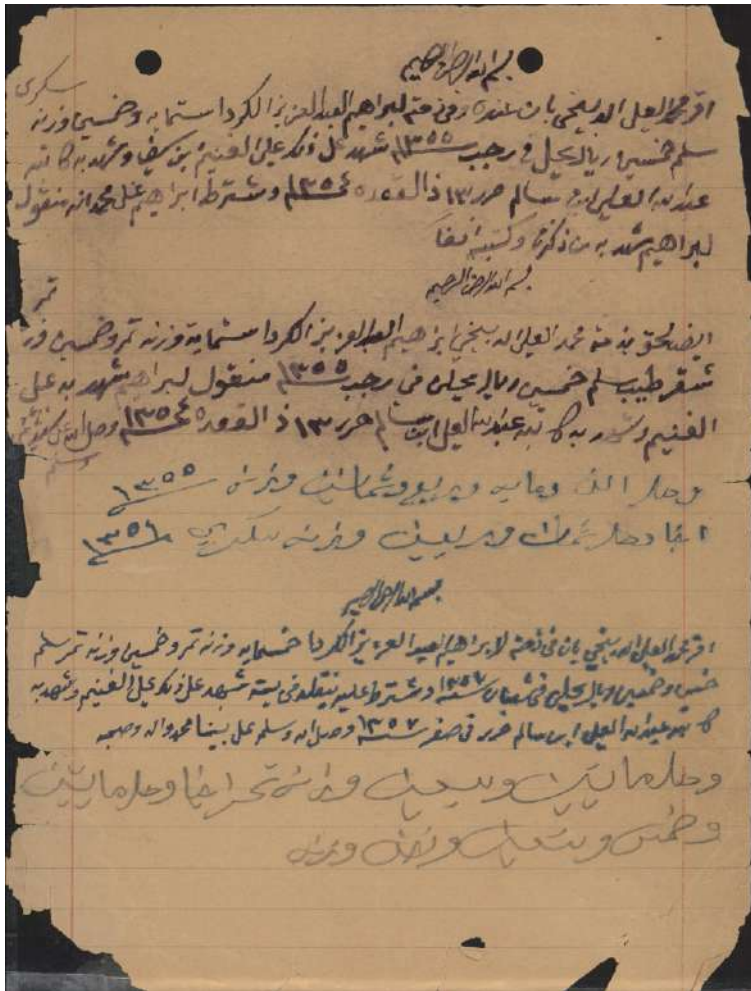 بسم الله الرحمن الرحيم
سكري
اقر محمد العلي بان عنده وفي ذمته لبراهيم العبد العزيز الكردا ستمايه وخمسين وزنه
سلم خمسين ريال يحل في رجب ١٣٥٥ شهد على ذلك علي الغنيم بن سيف وشهد به كاتبه
عبد الله العلي ابن سالم حرر ١٣ ذا القعده ١٣٥٤ وشترط ابراهيم على محمد انه منقول
لبراهيم شهد به من ذكرنا وكتبته ايضا
بسم الله الرحمن الرحيم
تمر
ايضا لحق بذمة محمد العلي ابراهيم العبد العزيز الكردا ستمايه وزنه تمر وخمسين وزنه
شقر طيب سلم خمسين ريال يحلن في رجب ١٣٥٥ منقول لبراهيم شهد به علي
الغنيم وشهد به كاتبه عبد الله العلي ابن سالم حرر ١٣ ذا القعده ١٣٥٤ وصل الله على
وسلم
وصل الف ومايه وربع وثمانين وزنه ١٣٥٥
ايضا وصل ثمان وربعين وزنه سكري ١٣٥٦
بسم الله الرحمن الرحيم
اقر محمد العلي بان في ذمته لابراهيم العبد العزيز الكردا خمسمايه وزنه تمر وخمسين وزنه تمر سلم
خمس وخمسين ريال يحلن في شعبان ١٣٥٧ وشترط عليه ينقله في بيته شهد على ذلك علي الغنيم وشهد به
كاتبه عبد الله العلي ابن سالم حرر في صفر ١٣٥٧ وصل الله وسلم على نبينا محمد واله وصحبه
وصل مايتين وسبعين وزنه تمر ايضا وصل مايتين
وخمس وتسعين ونصف وزنه